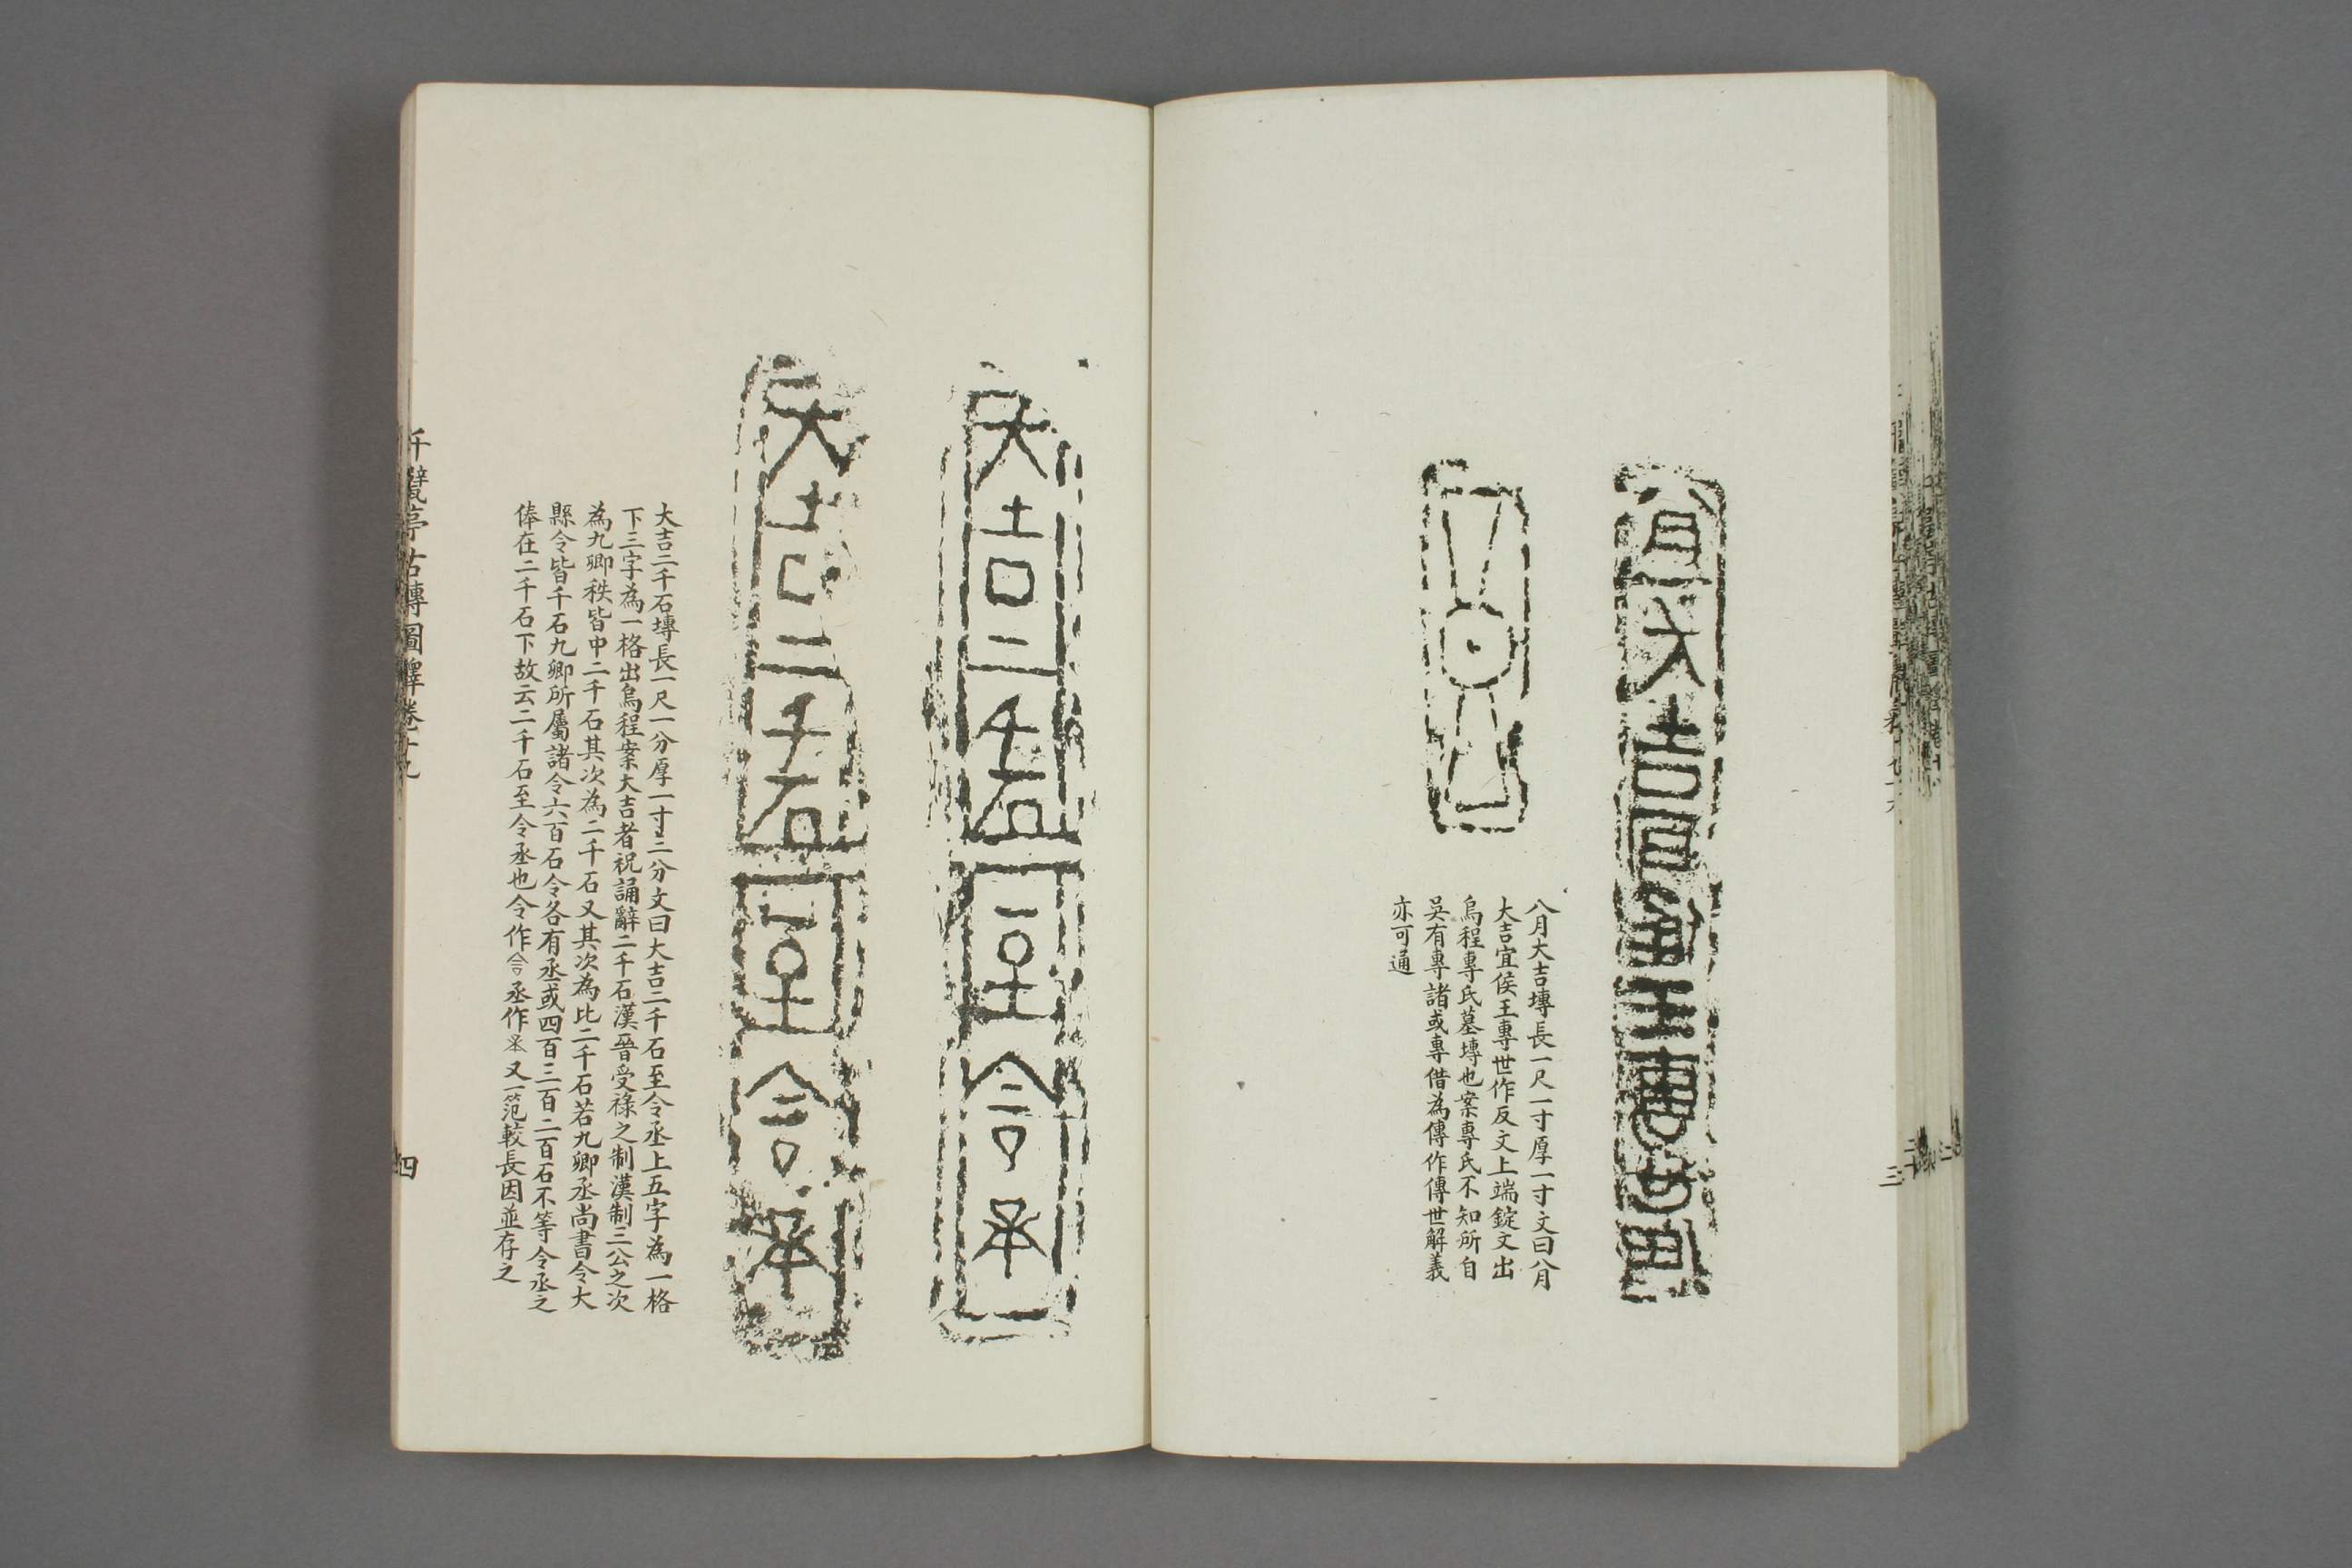 八月大吉塼長一尺一寸厚一寸文曰八月
大吉宜侯王專世作反文上端錠文出
烏程專氏墓塼也案專氏不知所自
吳有專諸或專借為傳作傳世解義
亦可通
三
大吉二千石至令丞
大吉二千石至令丞
大吉二千石塼長一尺一分厚一寸二分文曰大吉二千石至令丞上五字為一格
下三字為一格出烏程案大吉者祝誦辭二千石漢晉受祿之制漢制三公之次
為九卿秩皆中二千石其次為二千石又其次為比二千石若九卿丞尚書令大
縣令皆千石九卿所屬諸令六百石令各有丞或四百三百二百石不等令丞之
俸在二千石下故云二千石至令丞也令作 丞作 又一笵較長因並存之
千甓亭古塼圖釋卷十九
四